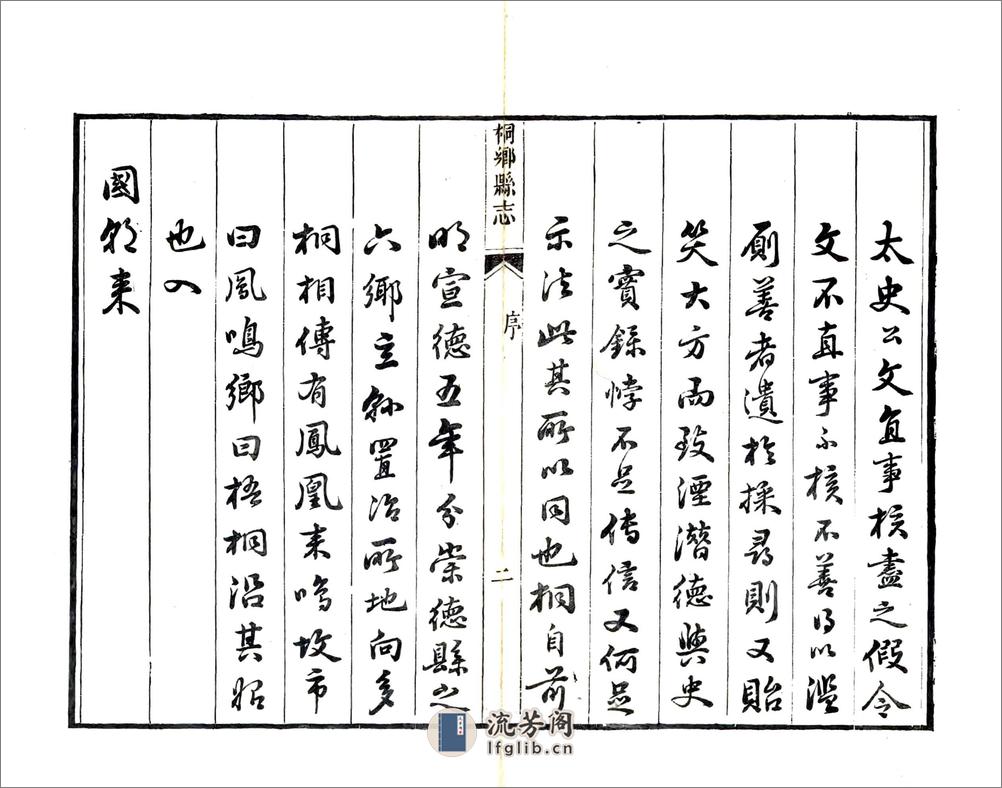 太史公文直事核盡之假令
文不直事不核不善得以濫
厠善者遺於採尋則又貽
笑大方而致湮潛德與史
之實錄悖不足傳信又何足
示法此其所以同也桐自前
桐鄉縣志
序
二
明宣德五年分崇德縣之
六鄉立縣置治所地向多
桐相傳有鳳凰来鳴故市
曰鳳鳴鄉曰梧桐沿其旧
也入
國朝来
流芳阁
lfglib.cn